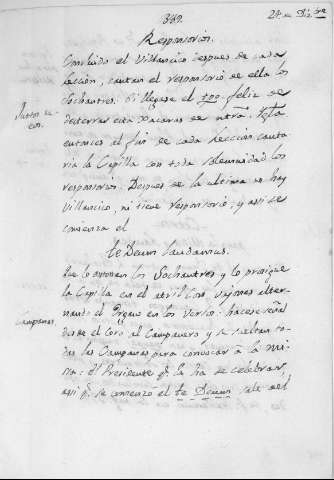 389.
24 de Diz.bre
Responsorios.
Concluido el Villancico despues de cada
Leccion, cantan el responsorio de ella los
Sochantres. Si llegase el tpo. feliz de
desterrar esta xacaras de ntra. Igla
entonces al fin de cada Leccion canta
ria la Capilla con toda solemnidad los
responsorios. Despues de la ultima no hay
Villancico, ni tiene responsorio; y assi se
comienza el
te Deum laudamus.
Que lo entonan los Sochantres y lo prosigue
la Capilla en el atril con vajones alter-
nando el Organo en los versos: hacese seña
desde el Coro al Campanero y se sueltan to-
das las Campanas para convocar à la mi-
sa: el Presidente q.e la ha de celebrar,
assi q.e se comenzó el te Deum, sale del
Campanas